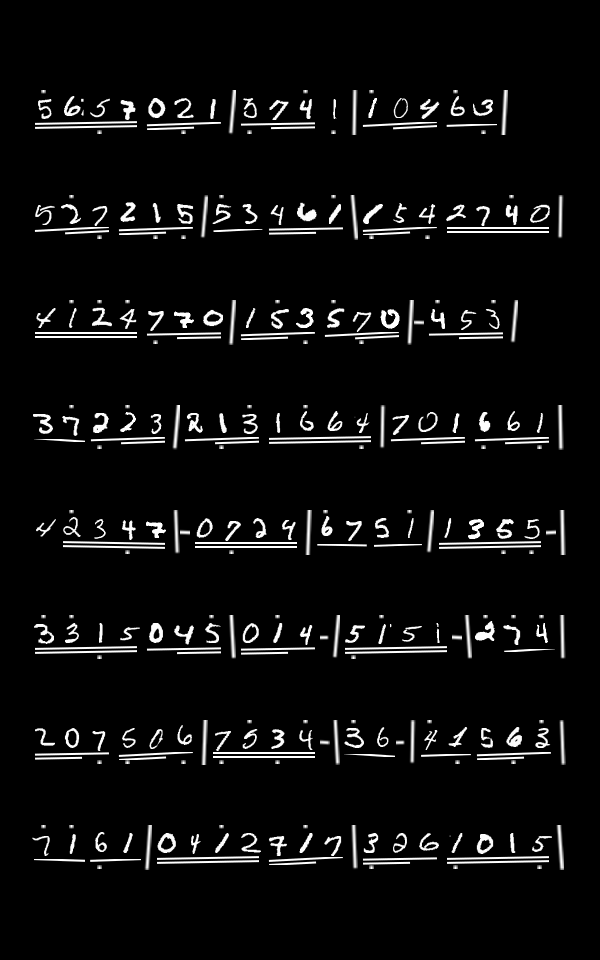 5657021|5741|10463|
527215|53461|1542740|
4124770|153570|-453|
372223|2131664|701661|
42347|-0729|6751|1355-|
3315045|014-|5151-|274|
207506|7534-|36-|41563|
7161|0412717|3261015|